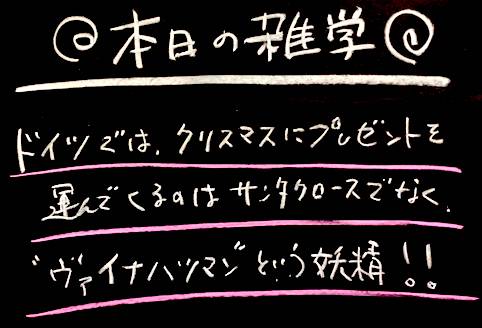 @本日の雑学@
ドイツでは、クリスマスにプレゼントを
運んでくるのはサンタクロースでなく、
"ヴァイナハツマン"という妖精!!